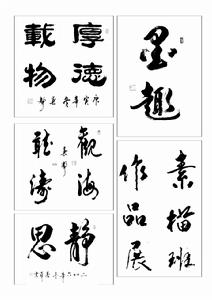 厚德
載物
墨趣
觀海
聽濤
素描班
作品展
靜思